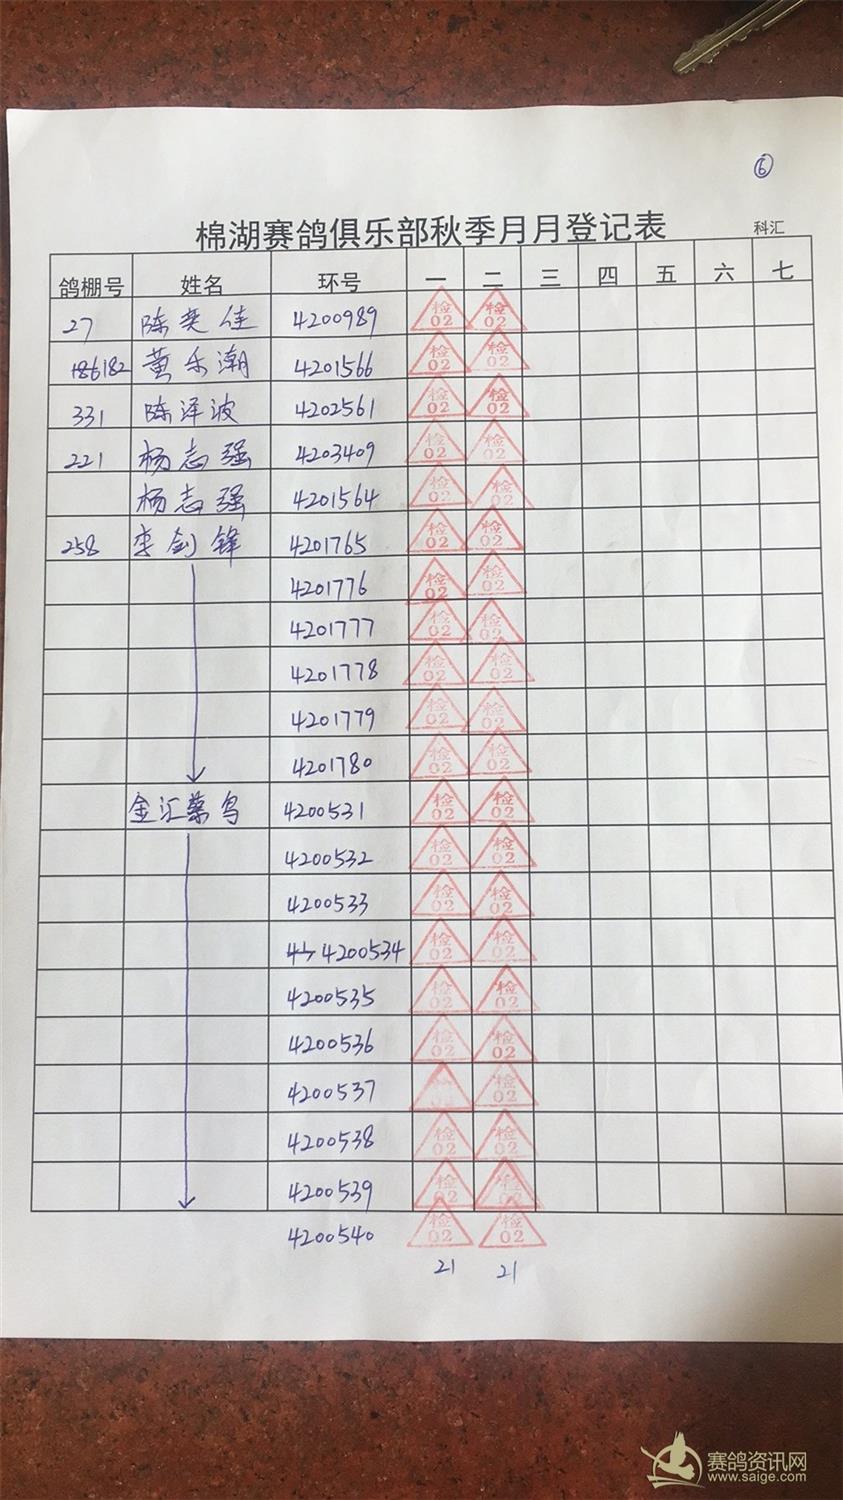 ⑥
棉湖赛鸽俱乐部秋季月月登记表 科汇
鸽棚号 姓名 环号 一 二 三 四 五 六 七
27 陈奕佳 4200989 检02 检02
186182 黄乐潮 4201566 检02 检02
331 陈泽波 4202561 检02 检02
221 杨志强 4203409 检02 检02
杨志强 4201564 检02 检02
258 李剑锋 4201765 检02 检02
4201776 检02 检02
4201777 检02 检02
4201778 检02 检02
4201779 检02 检02
4201780 检02 检02
金汇菜鸟 4200531 检02 检02
4200532 检02 检02
4200533 检02 检02
4200534 检02 检02
4200535 检02 检02
4200536 检02 检02
4200537 检02
4200538 检02 检02
4200539 检02 检02
4200540 检02 检02
21 21
赛鸽资讯网
www.saige.com